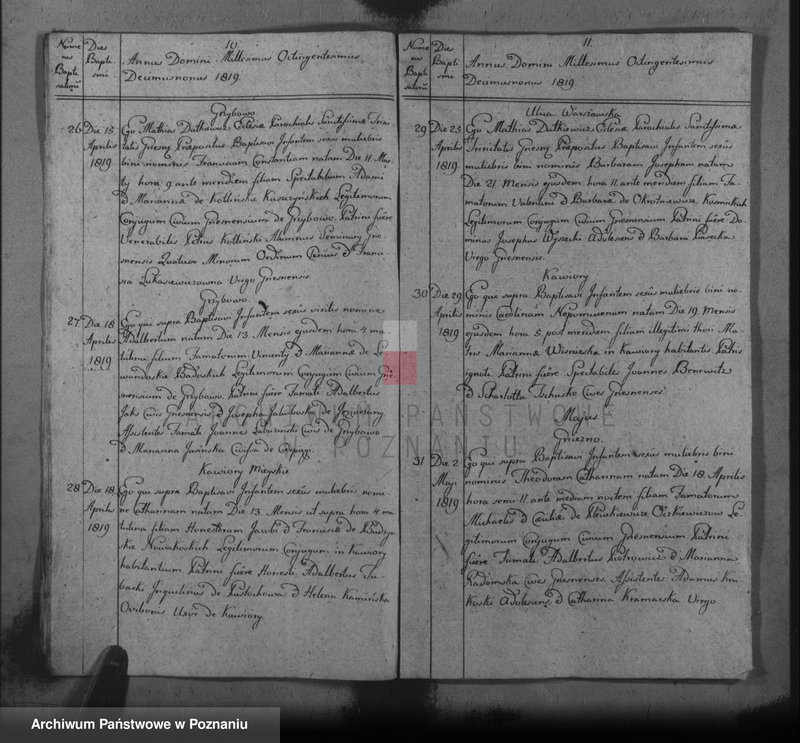 Nume
rus
Bapti
satorũ
Dies
Bapti
smi
10.
Annus Domini Millesimus Octingentesimus
Decimusnonus 1819.
Grzybowo
26 Die 15 Aprilis 1819
Ego Mathias Dutkiewicz Ecclesiæ Parochialis Sanctissimæ Trini
tatis Gnesnæ Præpositus Baptisavi Infantem sexus muliebris
bini nominis Franciscam Constantiam natam Die 11. Mar
tij hora 9 ante meridiem filiam Spectabilium Adami
& Mariannæ de Kotlińskie Kaszyńskich Legitimorum
Conjugum Civium Gnesnensium de Grzybowo. Patrini fuere
Venerabilis Petrus Kotliński Alumnus Seminarij Gne
snensis Quatuor Minorum Ordinum & Franci
sca Łukasiewiczowna Virgo Gnesnensis.
Grzybowo.
27 Die 18 Aprilis 1819
Ego qui supra Baptisavi Infantem sexûs virilis nomine
Adalbertum natum Die 13. Mensis ejusdem hora 4 ma
tutina filium Famatorum Vincenty & Mariannæ de Le
wandoskie Legitimorum Conjugum Civium Gne
snensium de Grzybowo. Patrini fuere Famati Adalbertus
Civis Gnesnensis & Josepha de
Assistentes Famati Joannes Civis de Grzybowo
& Marianna Jasinska Civissa de
Kawiory Mieyskie
28 Die 18 Aprilis 1819
Ego qui supra Baptisavi Infantem sexûs muliebris nomi
ne Catharinam natam Die 13. Mensis ut supra hora 4 ma
tutina filiam Honestorum Jacobi & Franciscæ de Budzyń
skie Nowakoskich Legitimorum Conjugum in Kawiory
habitantium Patrini fuere Honesti Adalbertus Tu
backi Inquilinus de Pustachowa & Helena Kamińska
Uxor de Kawiory
Nume
rus
Bapti
satorũ
Dies
Bapti
smi
11.
Annus Domini Millesimus Octingentesimus
Decimusnonus 1819
Ulica Warszawska
29 Die 23 Aprilis 1819
Ego Mathias Dutkiewicz Ecclesiæ Parochialis Sanctissimæ
Trinitatis Gnesnæ Præpositus Baptisavi Infantem sexûs
muliebris bini nominis Barbaram Josepham natam
Die 21 Mensis ejusdem hora 11. ante meridiem filiam Fa
matorum Valentini & Barbaræ de Okoniewicz Kosmickich
Legitimorum Conjugum Civium Gnesnensium. Patrini fuere Do
minus Josephus Wysocki Adolescens & Barbara Piasecka
Virgo Gnesnensis.
Kawiory
30 Die 29 Aprilis 1819
Ego qui supra Baptisavi Infantem sexûs muliebris bini no
minis Carolinam Nepomucenam natam Die 19. Mensis
ejusdem hora 5. post meridiem filiam illegitimi thori Ma
tris Mariannæ Wisnieska in Kawiory habitantis Patris
ignoti Patrini fuere Spectabiles Joannes Benewitz
& Scharlotta Tschuske Cives Gnesnenses.
Majus
Gniezno
31 Die 2 Maji 1819
Ego qui supra Baptisavi Infantem sexûs muliebris bini
nominis Theodoram Catharinam natam Die 18. Aprilis
hora semi 11. ante mediam noctem filiam Famatorum
Michaelis & Ceciliæ de Le
gitimorum Conjugum Civium Gnesnensium Patrini
fuere Famati Adalbertus Piotrowicz & Marianna
Radomska Cives Gnesnenses. Assistentes Adamus Kru
koski Adolescens & Catharina Kramarska Virgo
PAŃSTWOWE
POZNANIU
Archiwum Państwowe w Poznaniu